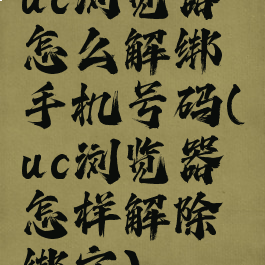 uc浏览器
怎么解绑
手机号码(
uc浏览器
怎样解除
绑定)